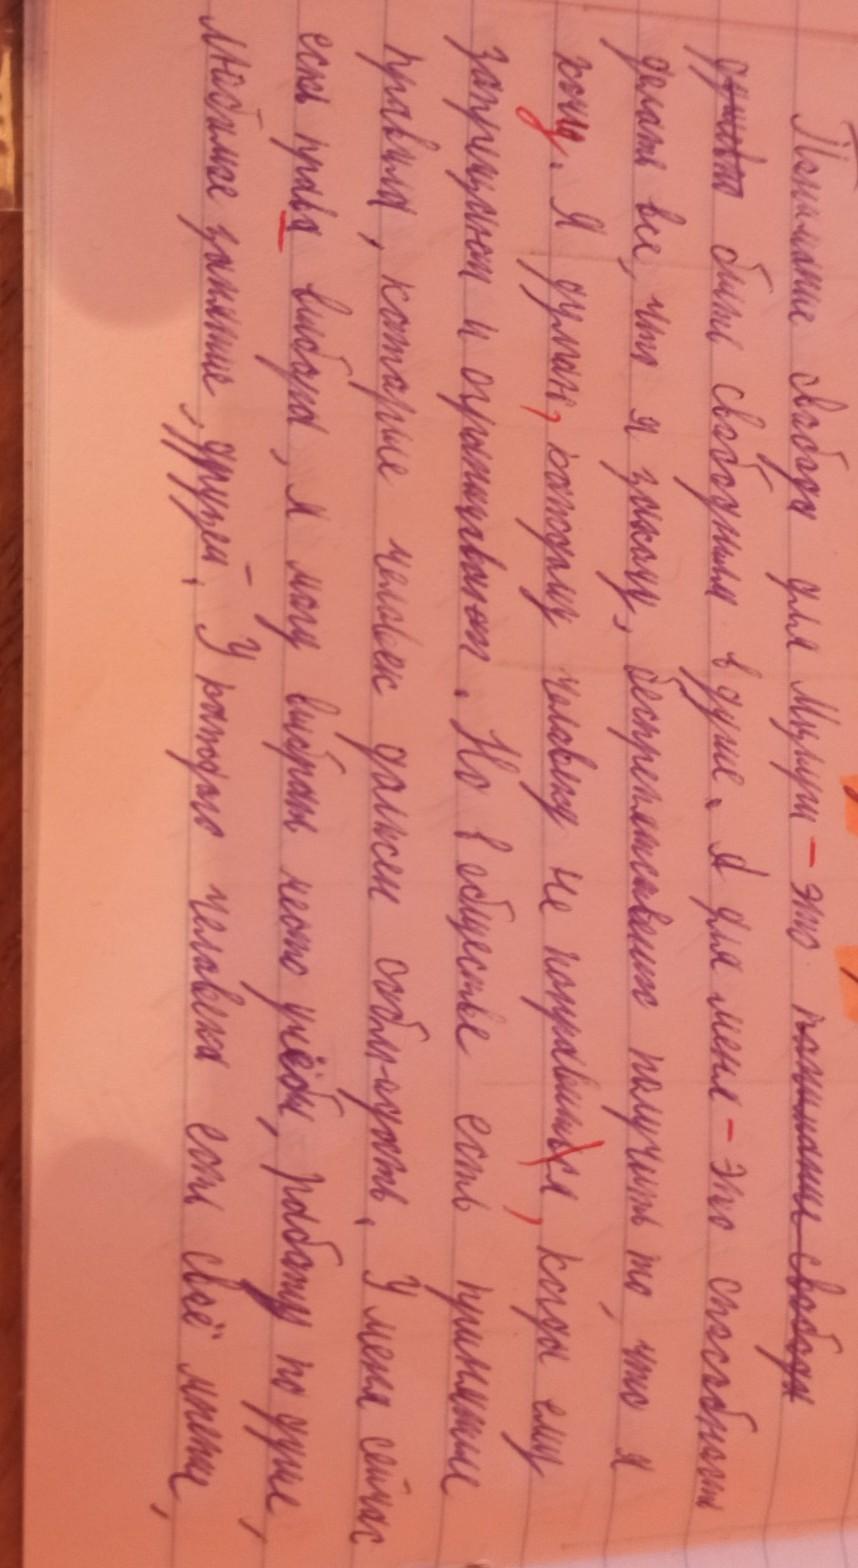 Понимание свободы для Мцыри - это понимание свободы
быть свободным в душе. А для меня - это способность
делать все, что я захочу, беспрепятственно получить то, что я
хочу. Я думаю, которому человеку не понравиться, когда ему
запрещают и ограничивают. Но в обществе есть принятые
правила, которые человек должен соблюдать. У меня сейчас
есть права выбора, я могу выбрать место учёбы, работу по душе,
любимое занятие, друзей. У каждого человека есть своё мнение,